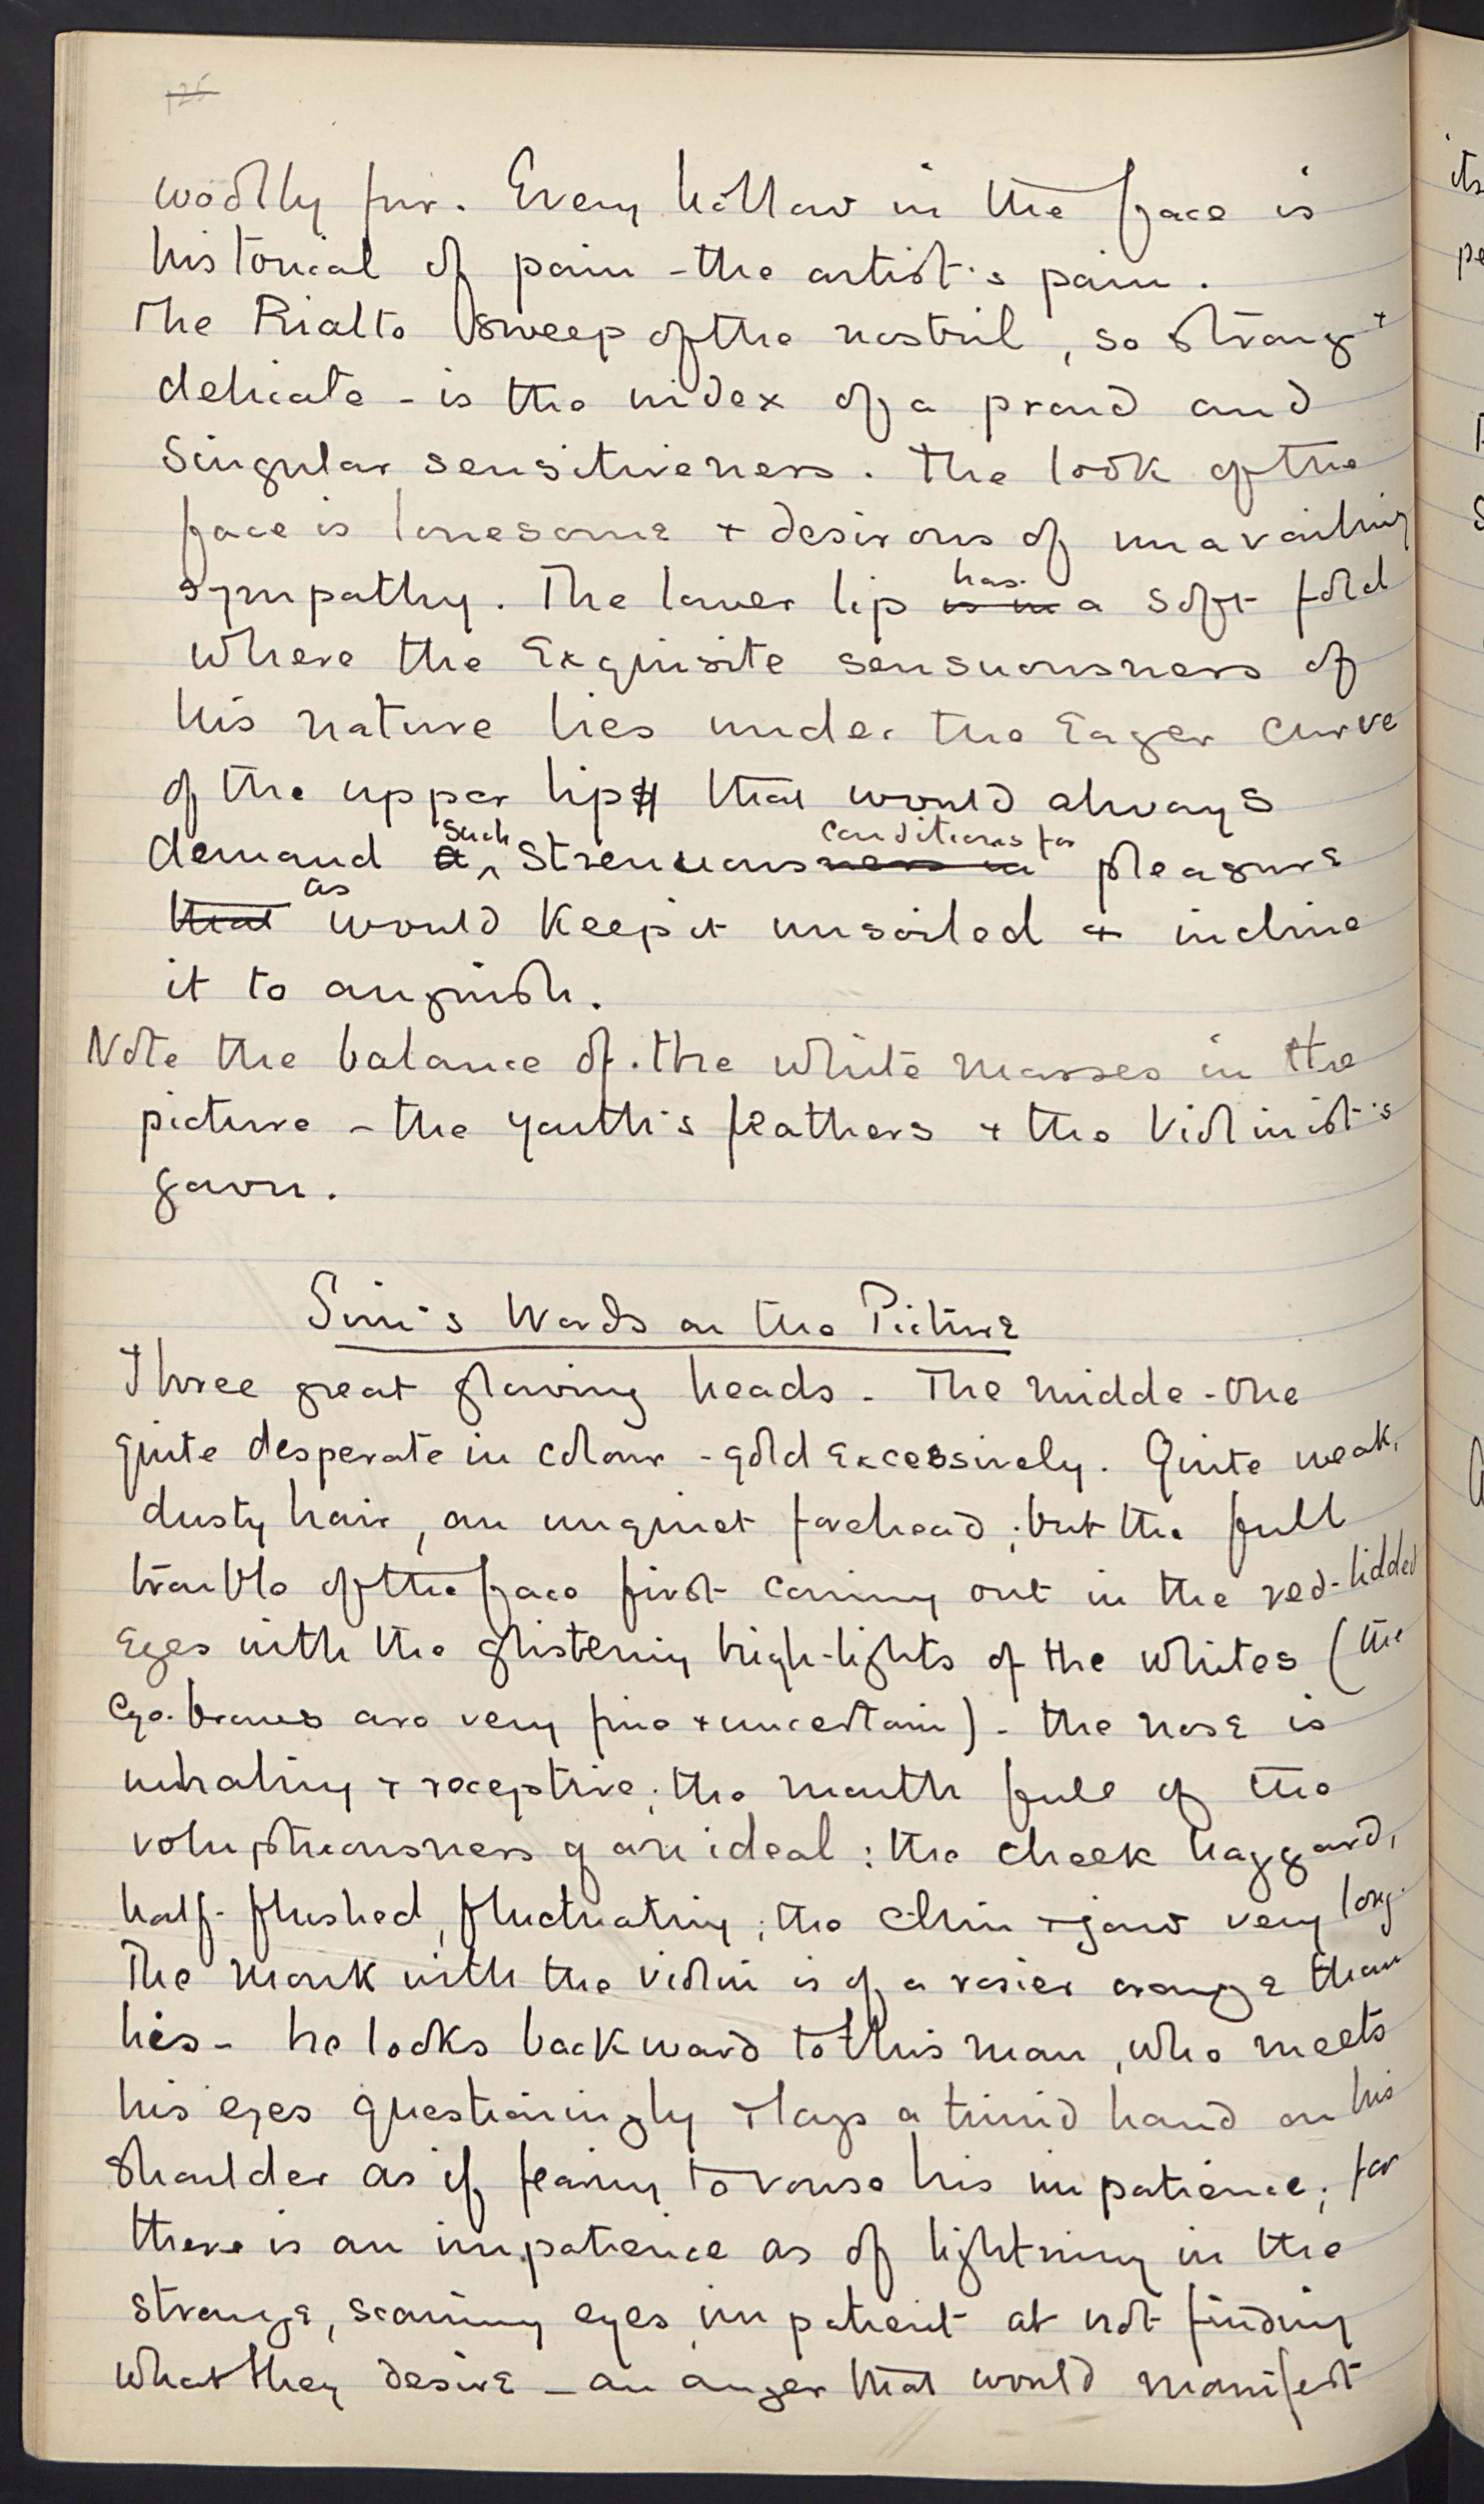 woolly fur. Every hollow in the face is
historical of pain - the artist's pain.
The Rialto sweep of the nostril, so strong +
delicate - is the index of a proud and
singular sensitiveness. The look of the
face is lonesome + desirous of unavailing
sympathy. The lower lip has a soft fold
where the exquisite sensuousness of
his nature lies under the eager curve
of the upper lip that would always
demand such strenuous conditions for pleasure
as would keep it unsoiled & incline
it to anguish.
Note the balance of the white masses in the
picture - the youth's feathers + the Violinist's
gown.
Sim's Words on the Picture
Three great glowing heads. The midde-one
quite desperate in colour - gold excessively. Quite weak,
dusty hair, an unquiet forehead; but the full
trouble of the face first coming out in the red-lidded
eyes with the glistening high-lights of the whites (the
eye-brows are very fine + uncertain) - the nose is
inhaling + receptive; the mouth full of the
voluptuousness of an ideal: the cheek haggard,
half-flushed, fluctuating; the chin + jaw very long.
The monk with the violin is of a rosier orange than
his - he looks backward to this man, who meets
his eyes questioningly + lays a timid hand on his
shoulder as if fearing to rouse his impatience; for
there is an impatience as of lightning in the
strange, scanning eyes, impatient at not finding
what they desire - an anger that would manifest